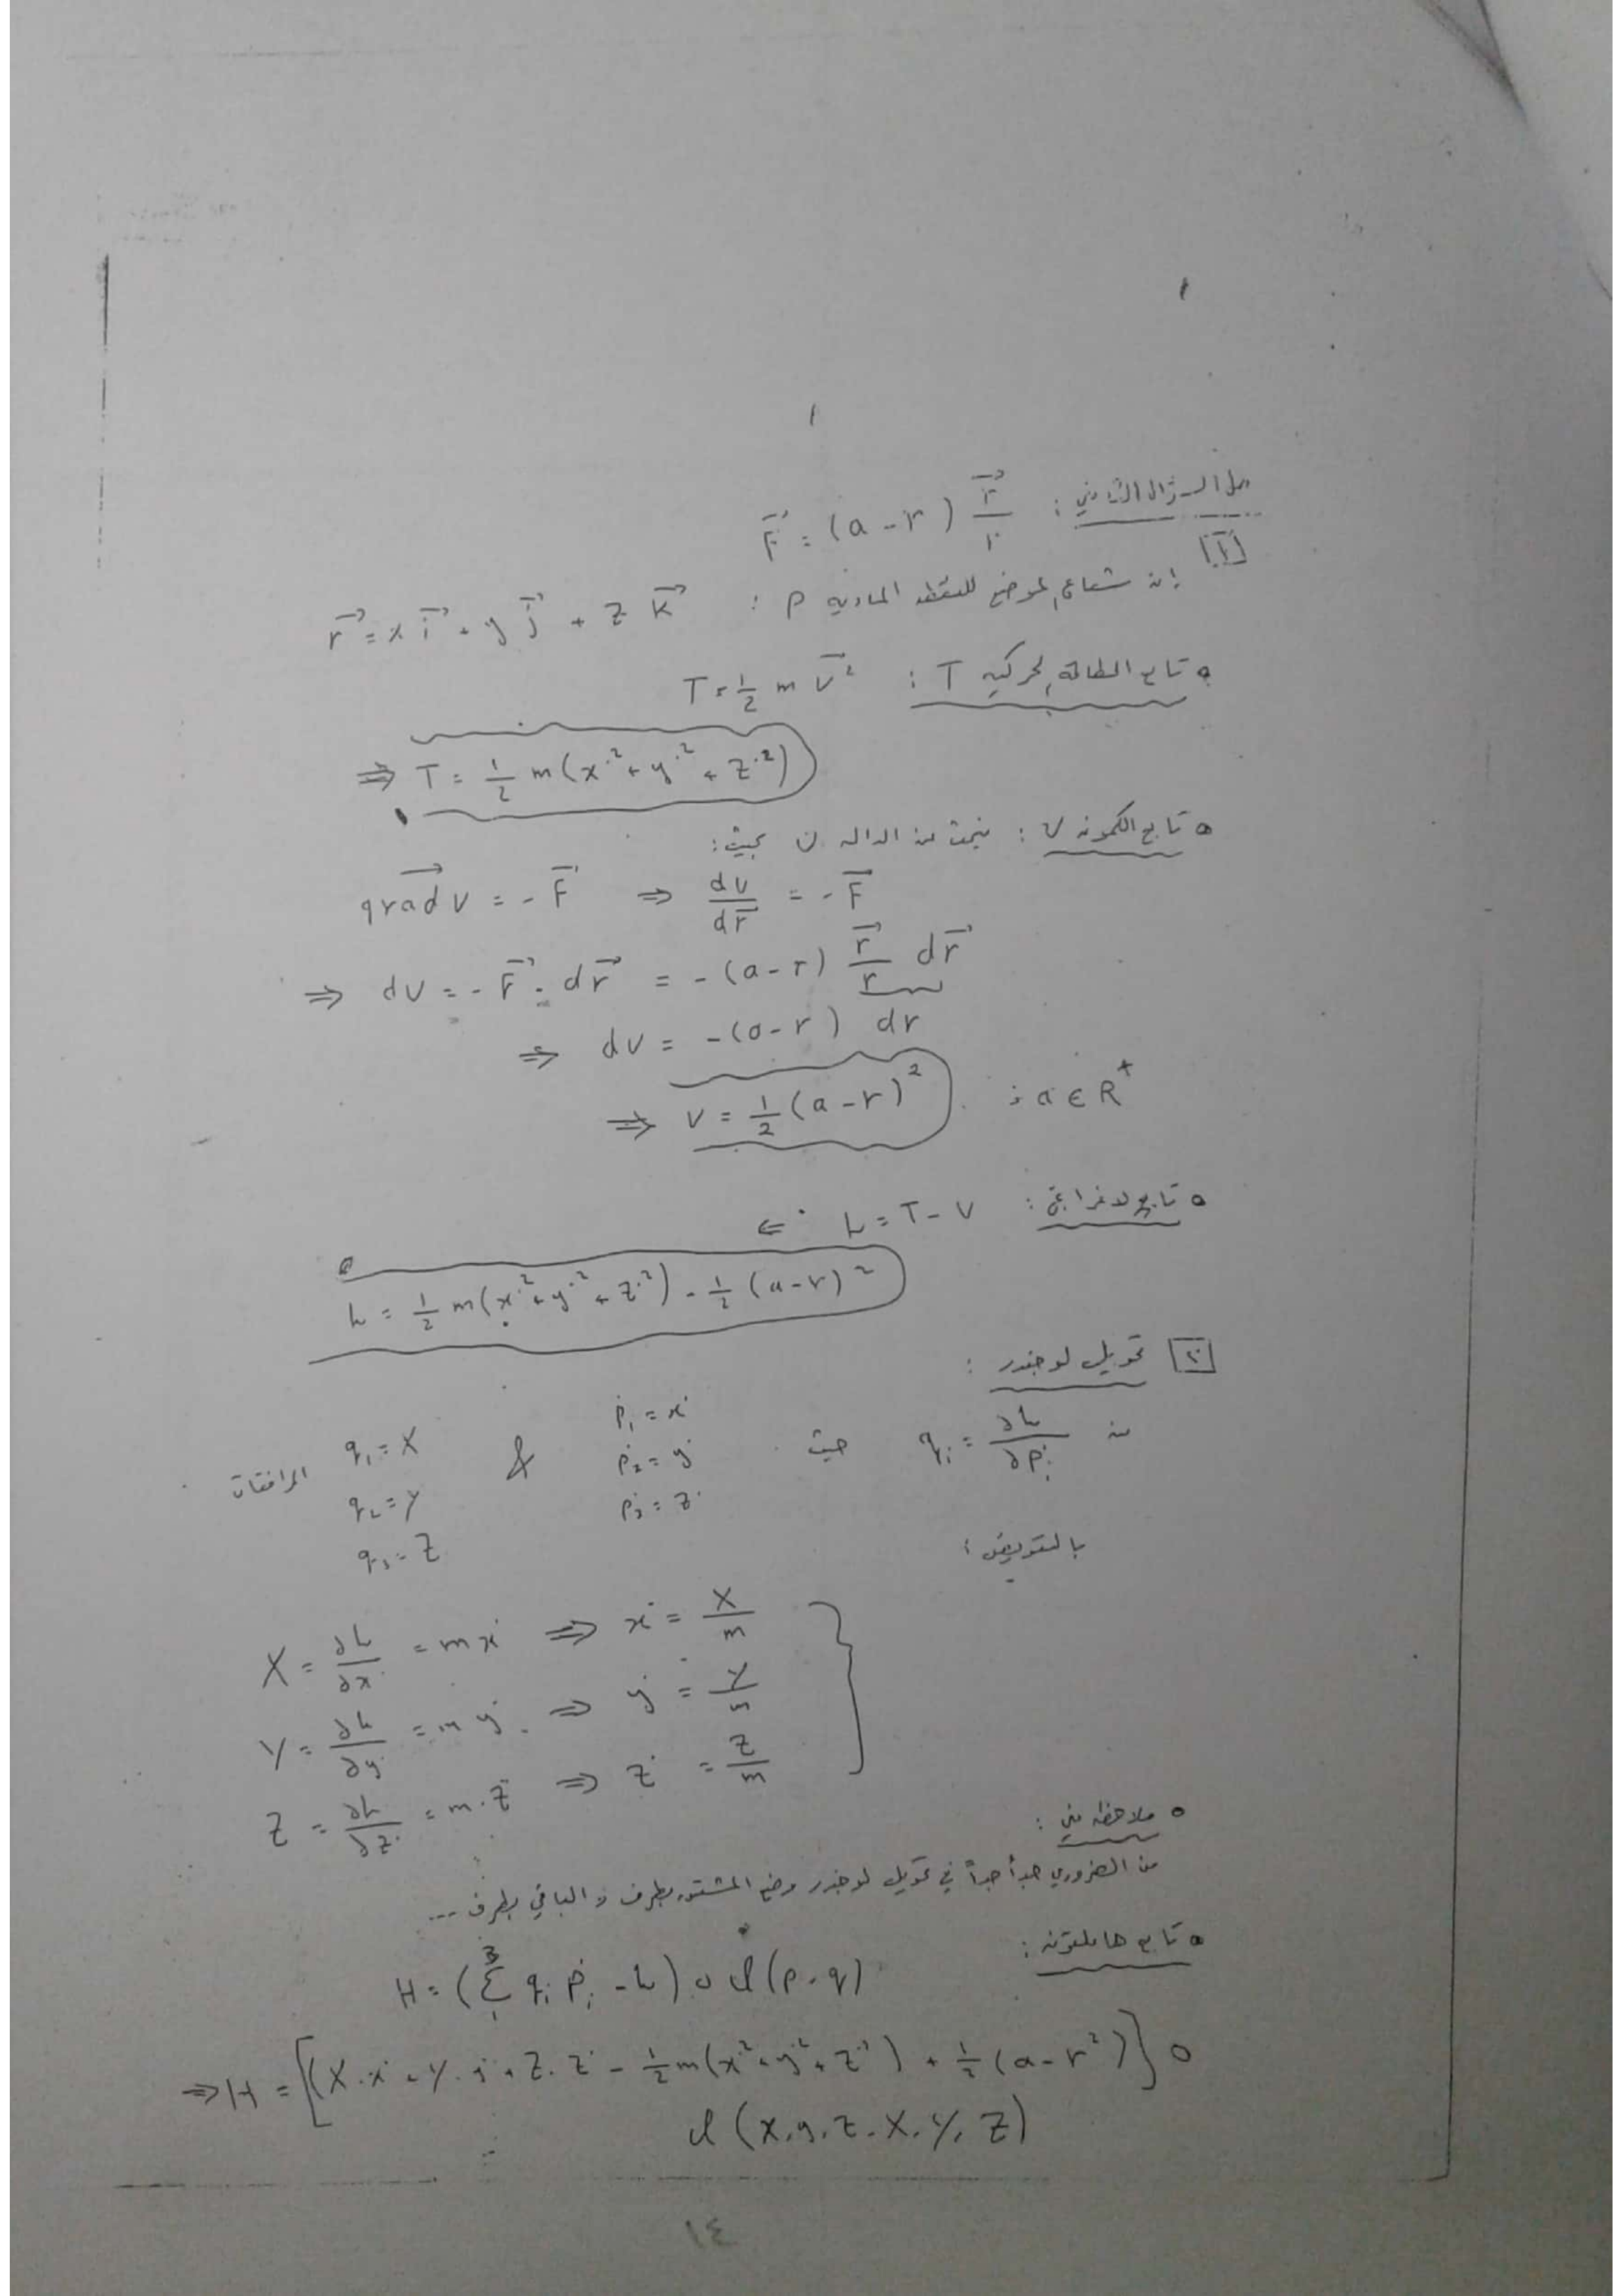 حل السؤال الثاني : F⃗ = (a - r) r⃗/r
[1] إن شعاع الموضع للنقطة المادية P : r⃗ = x i⃗ + y j⃗ + z k⃗
∘ تابع الطاقة الحركية T : T = 1/2 m v⃗²
⇒ T = 1/2 m(x˙² + y˙² + z˙²)
∘ تابع الكمون V : ينتج من الدالة U بحيث :
grad V = - F⃗ ⇒ dv/dr⃗ = - F⃗
⇒ dV = - F⃗ . dr⃗ = -(a-r) r⃗/r dr⃗
⇒ dV = -(a-r) dr
⇒ V = 1/2 (a-r)² ; a ∈ R⁺
∘ تابع لاغرانج : L = T - V ⇐
L = 1/2 m(x˙² + y˙² + z˙²) - 1/2 (a-r)²
[٢] تحويل لوجندر :
من qᵢ = ∂L/∂pᵢ˙ حيث p₁˙ = x˙ & q₁ = X المرافقات
p₂˙ = y˙ q₂ = Y
p₃˙ = z˙ q₃ = Z
بالتعويض :
X = ∂L/∂x˙ = m x˙ ⇒ x˙ = X/m
Y = ∂L/∂y˙ = m y˙ ⇒ y˙ = Y/m
Z = ∂L/∂z˙ = m.z˙ ⇒ z˙ = Z/m
∘ ملاحظة
من الضروري جداً جداً في تحويل لوجندر وضع المشتق بطرف و الباقي بطرف ...
∘ تابع هاملتون :
H = (Σ₁³ qᵢ pᵢ˙ - L) (p.q)
⇒ H = [(X.x˙ + Y.y˙ + Z.z˙ - 1/2 m(x˙² + y˙² + z˙²) + 1/2 (a-r²)]
(x.y.z.X.Y.Z)
١٤